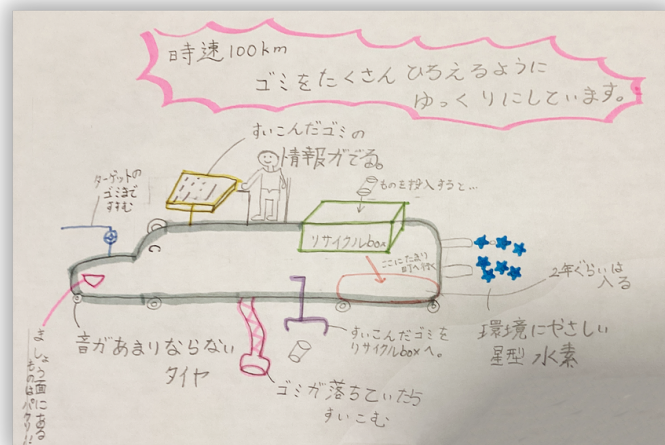 時速100km
ゴミをたくさん ひろえるように
ゆっくりにしています。
すいこんだゴミの
情報がでる。
ターゲットの
ゴミまで
すすむ
ものを投入すると…
リサイクルbox
ここにたまり
2年ぐらいは
入る
環境にやさしい
星型 水素
すいこんだゴミを
リサイクルboxへ。
音があまりならない
タイヤ
ゴミが落ちていたら
すいこむ
ましょう面にある
ものはパクリ!!